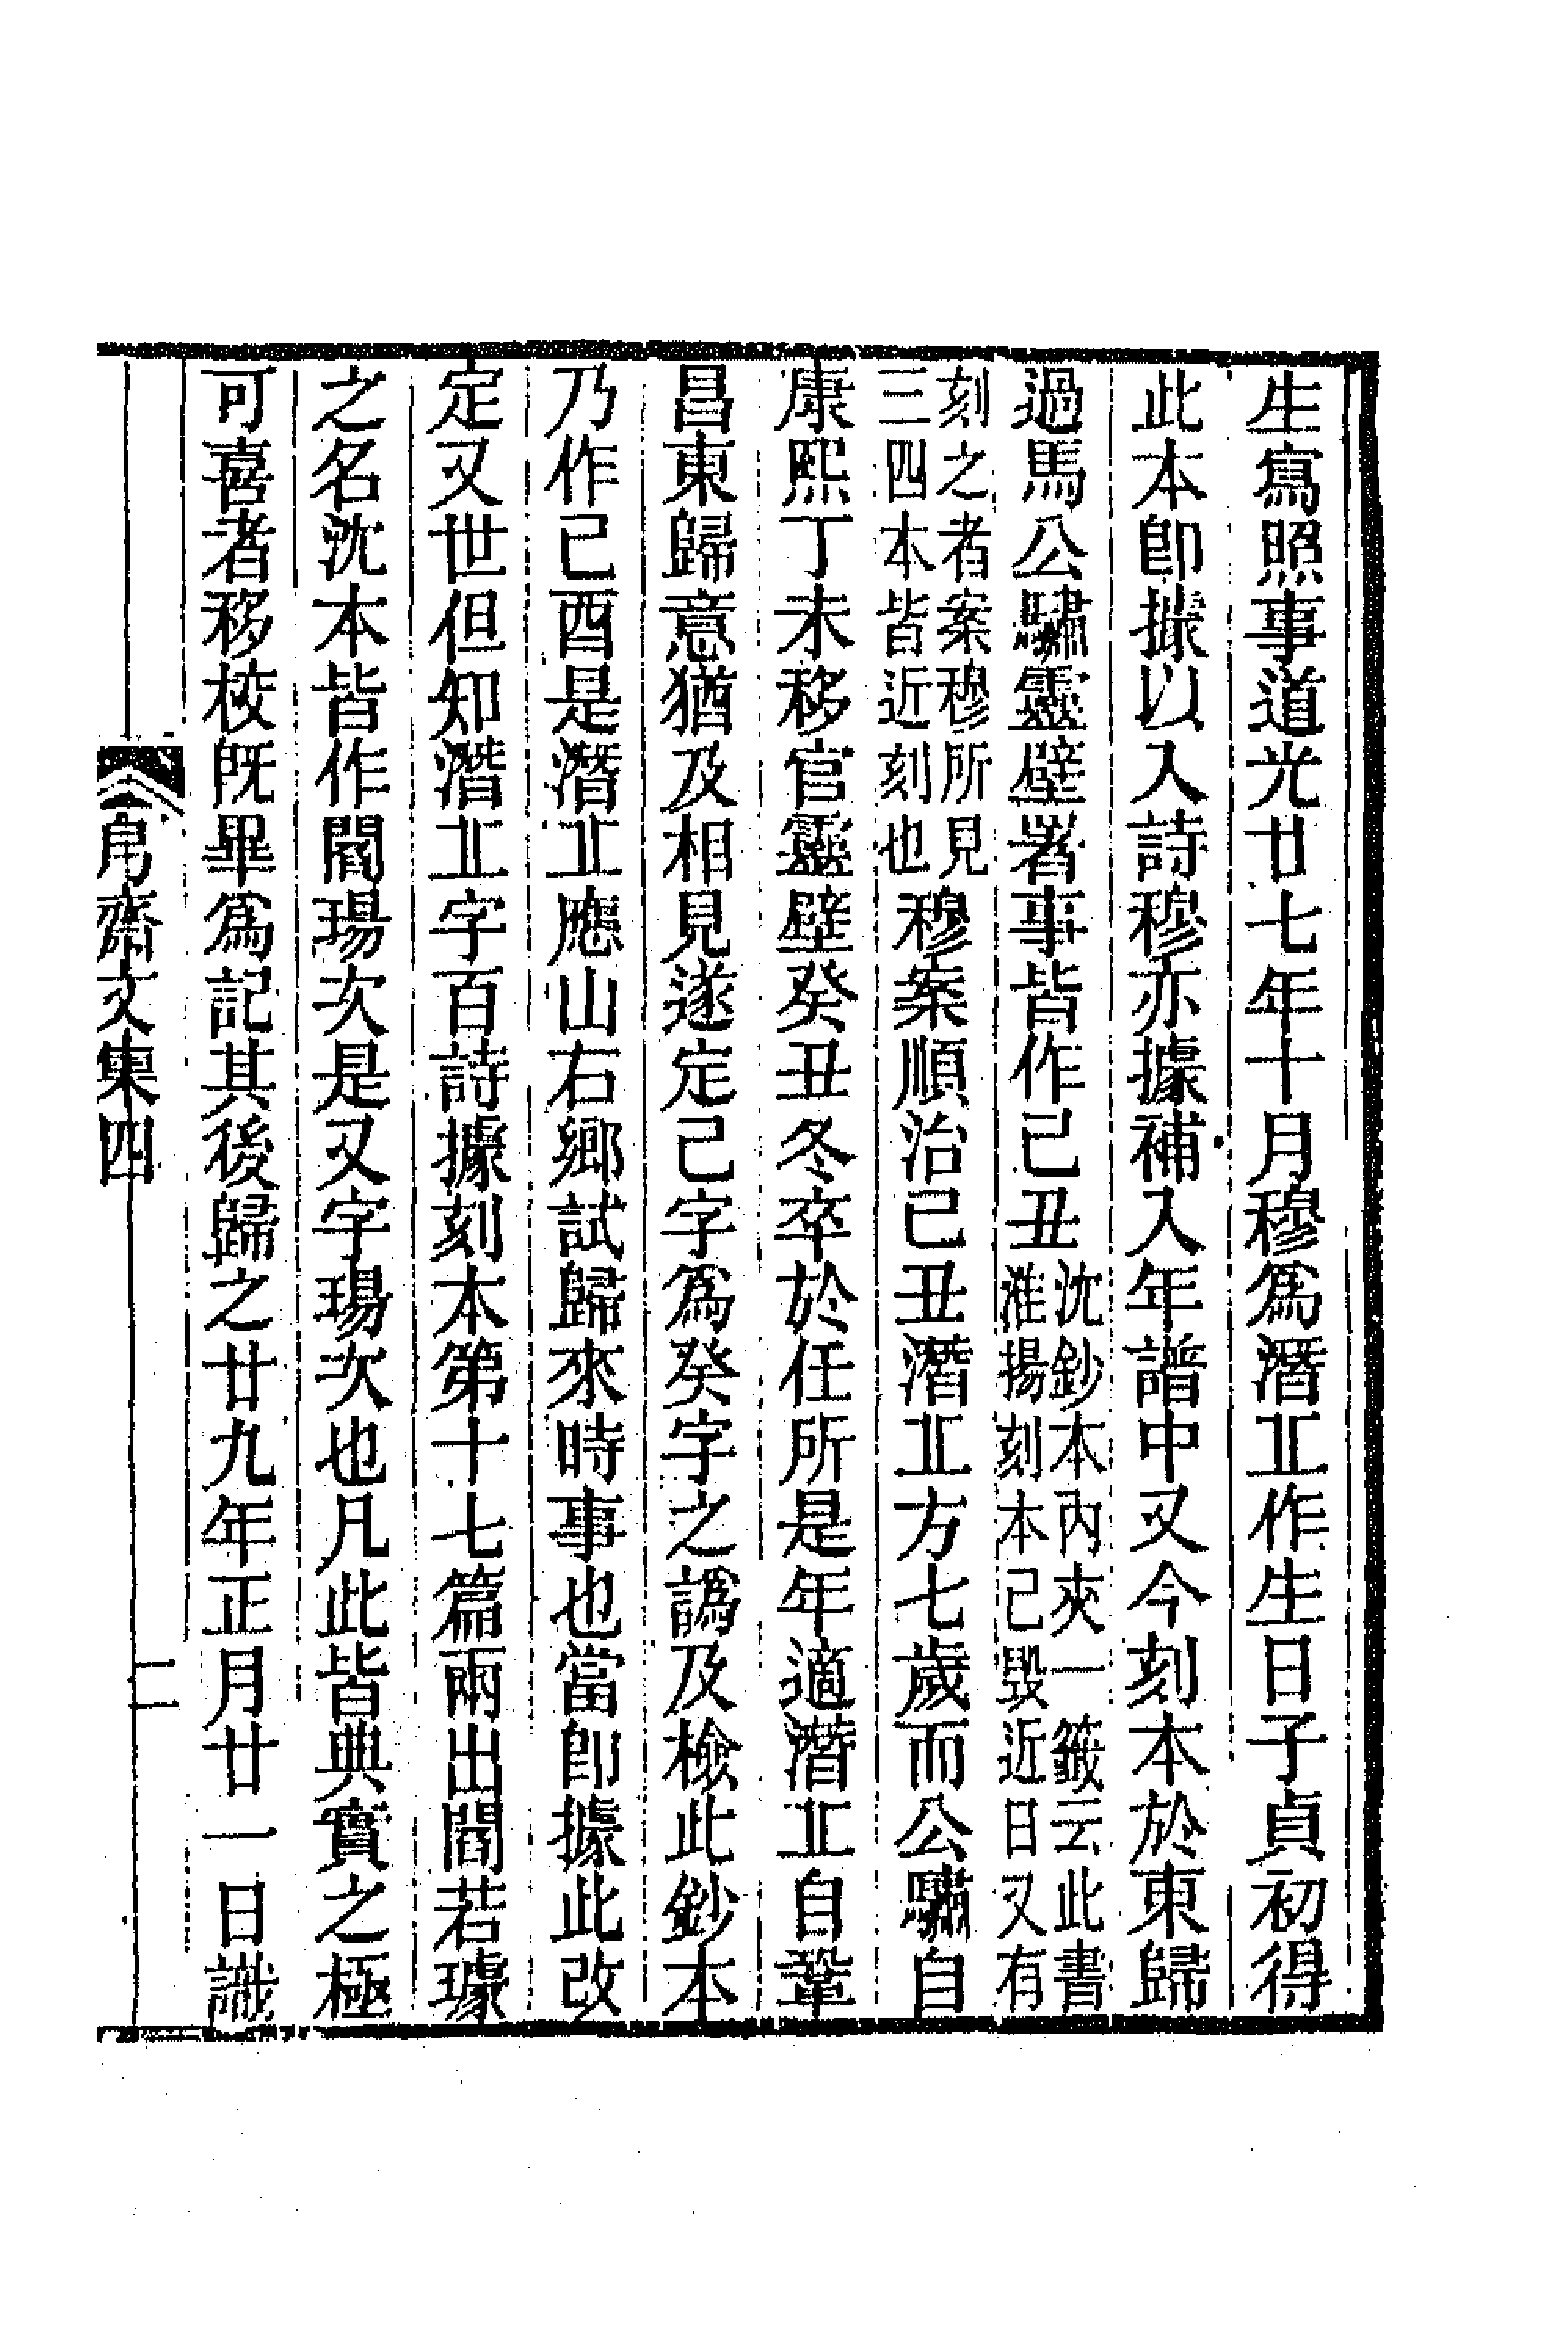 生寫照事道光廿七年十月穆為潛丠作生日子貞初得
此本卽據以入詩穆亦據補入年譜中又今刻本於東歸
過馬公驌靈壁署事皆作己丑沈鈔本內夾一籤云此書
淮揚刻本已毀近日又有
刻之者案穆所見
三四本皆近刻也穆案順治己丑潛丠方七歲而公驌自
康熙丁未移官靈壁癸丑冬卒於任所是年適潛丠自鞏
昌東歸意猶及相見遂定己字爲癸字之譌及檢此鈔本
乃作己酉是潛丠應山右鄉試歸來時事也當卽據此改
定又世但知潛丠字百詩據刻本第十七篇兩出閻若璩
之名沈本皆作閻瑒次是又字瑒次也凡此皆典實之極
可喜者移校旣畢爲記其後歸之廿九年正月廿一日識
㐆齋文集四
二